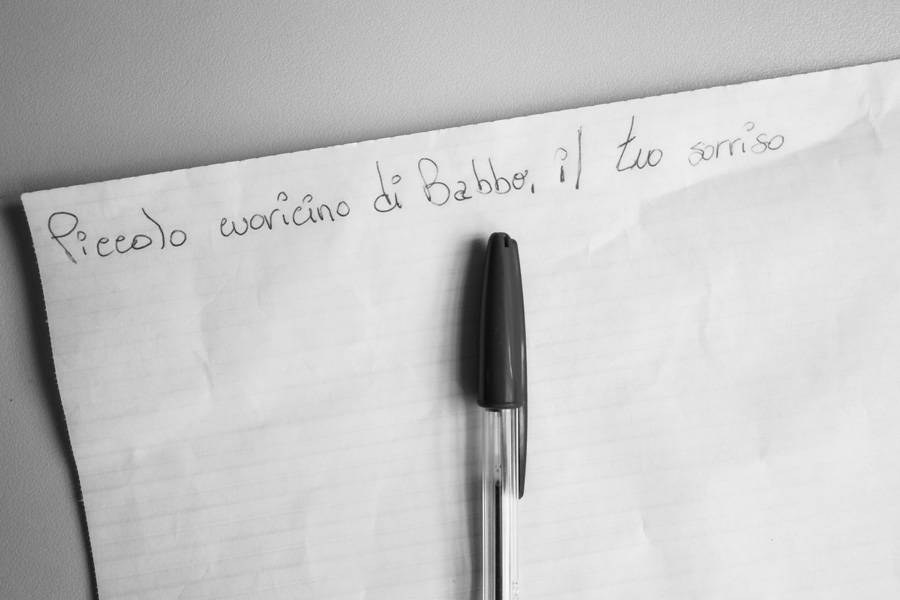 Piccolo cuoricino di Babbo, il tuo sorriso